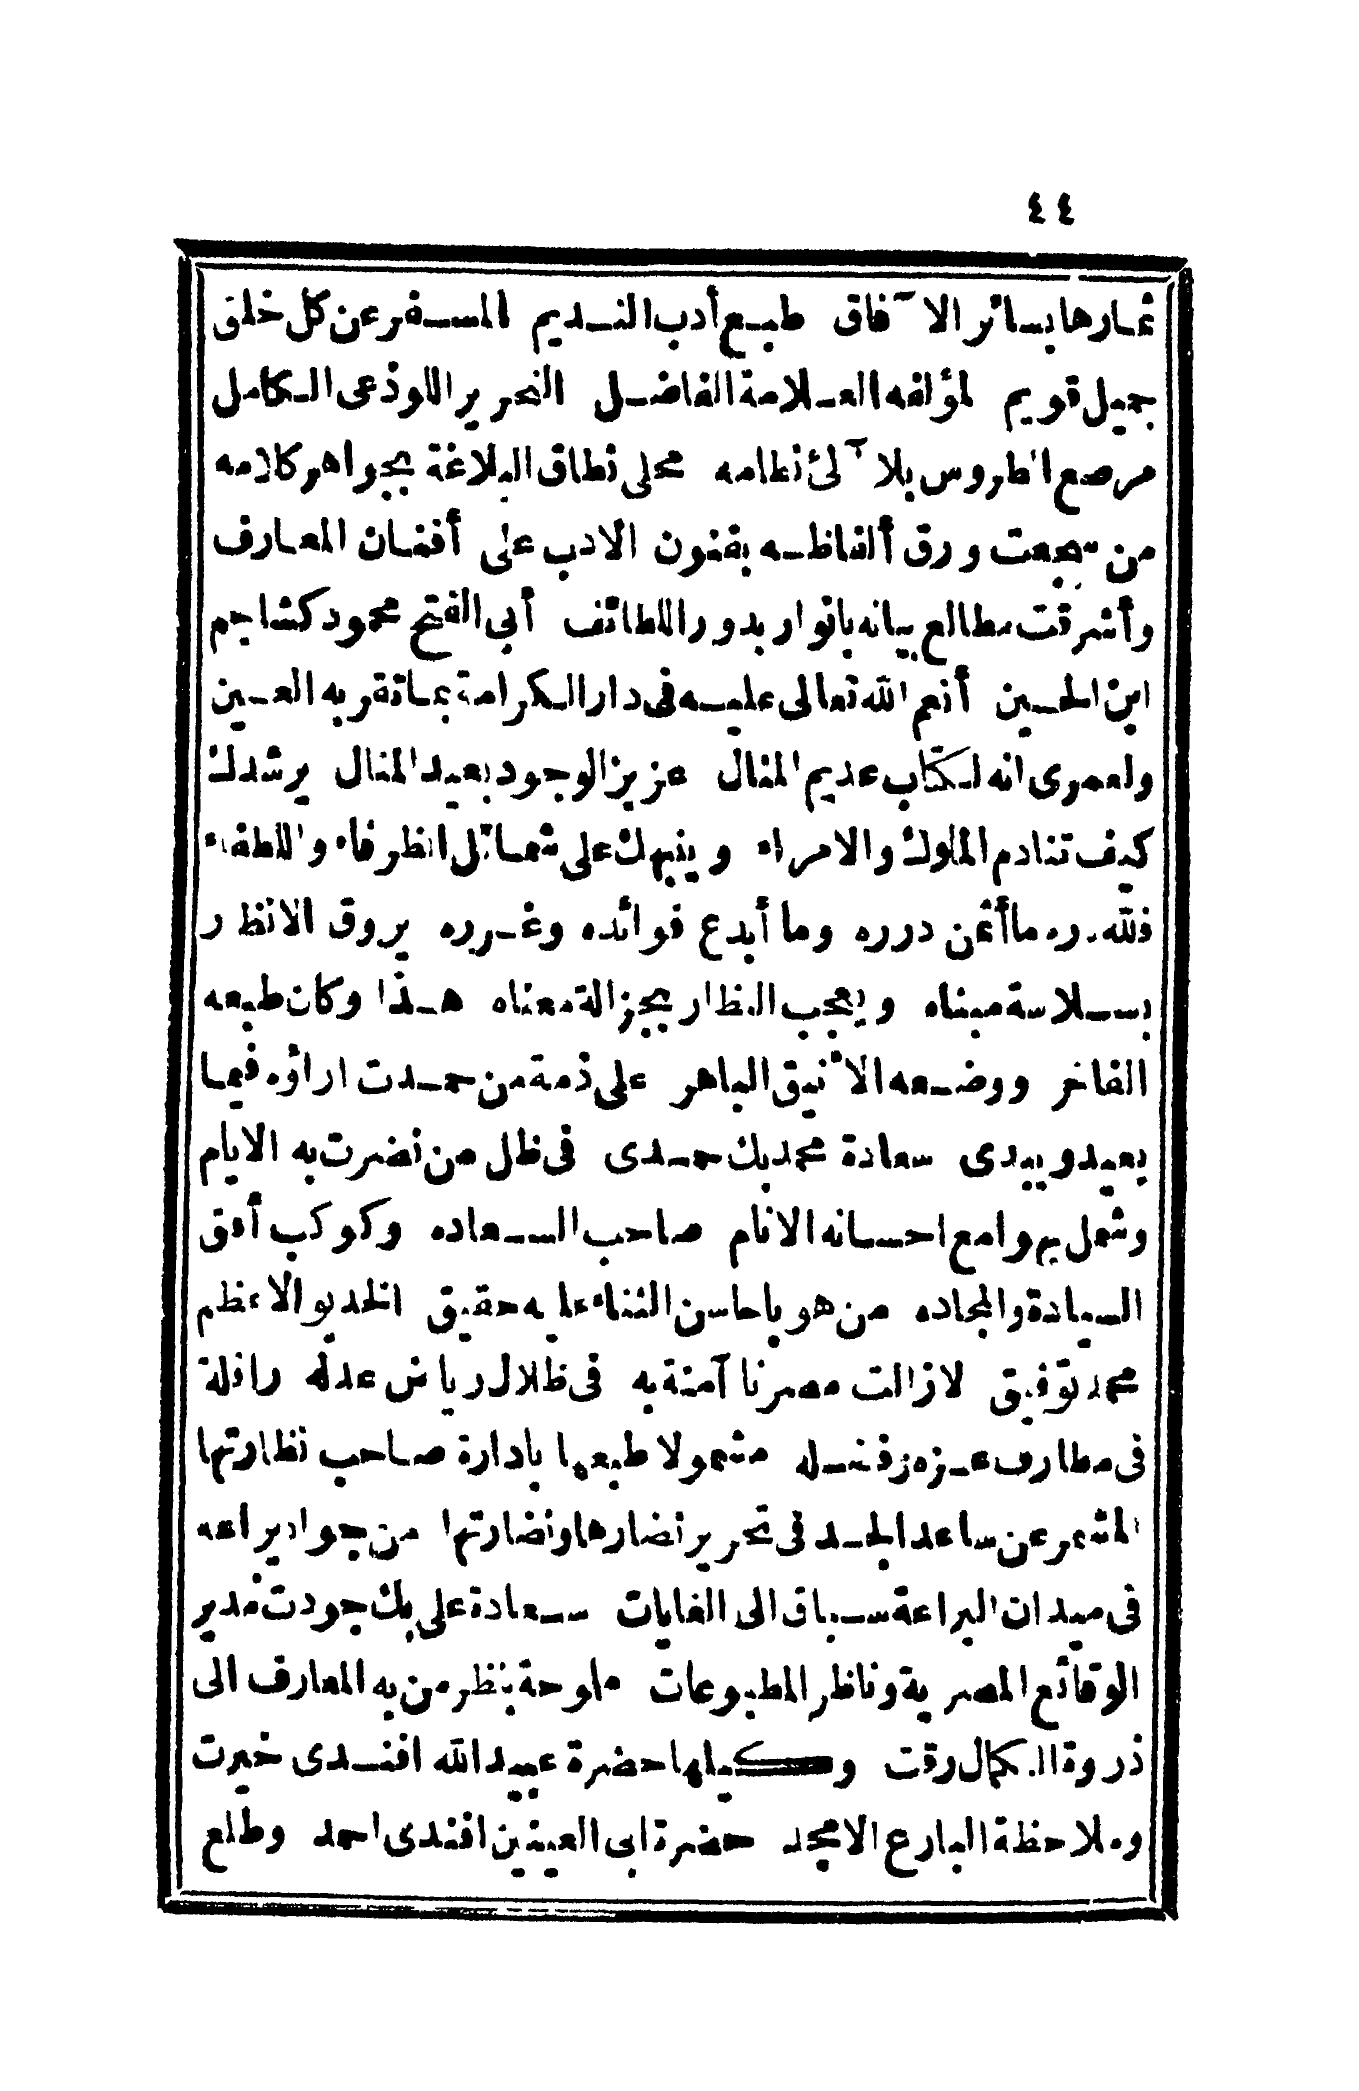 ٤٤
ثمارها بسائر الآفاق طبع أدب النديم المسفر عن كل خلق
جميل قويم لمؤلفه العلامة الفاضل النحرير اللوذعى الكامل
مرصع الطروس بلآلئ نظامه محلى نطاق البلاغة بجواهر كلامه
من سجعت ورق ألفاظه بفنون الادب على أفنان المعارف
وأشرقت مطالع بيانه بانوار بدور اللطائف أبى الفتح محمود كشاجم
ابن الحسين أنعم الله تعالى عليه فى دار الكرامة بما تقر به العين
ولعمرى انه لكتاب عديم المثال عزيز الوجود بعيد المنال يرشدك
كيف تنادم الملوك والامراء وينبهك على شمائل الظرفاء واللطفاء
فلله دره ما أثمن درره وما أبدع فوائده وغرره يروق الانظار
بسلاسة مبناه ويعجب النظار بجزالة معناه هذا وكان طبعه
الفاخر ووضعه الأنيق الباهر على ذمة من حمدت اراؤه فيما
يعيد ويبدى سعادة محمد بك حمدى فى ظل من نضرت به الايام
وشمل بهوامع احسانه الانام صاحب السعاده وكوكب أفق
السيادة والمجاده من هو باحاسن الثناء عليه حقيق الخديو الاعظم
محمد توفيق لا زالت مصرنا آمنة به فى ظلال رياض عدله رافلة
فى مطارف عزه وفضله مشمولا طبعها بادارة صاحب نظارتها
المشمر عن ساعد الجد فى تحرير نضارها ونضارتها من جواد يراعه
فى ميدان البراعة سباق الى الغايات سعادة على بك جودت مدير
الوقائع المصرية وناظر المطبوعات ملوحة بنظر من به المعارف الى
ذروة الكمال رقت وكيلها حضرة عبيد الله افندى خيرت
وملاحظة البارع الامجد حضرة ابى العينين افندى احمد وطلع